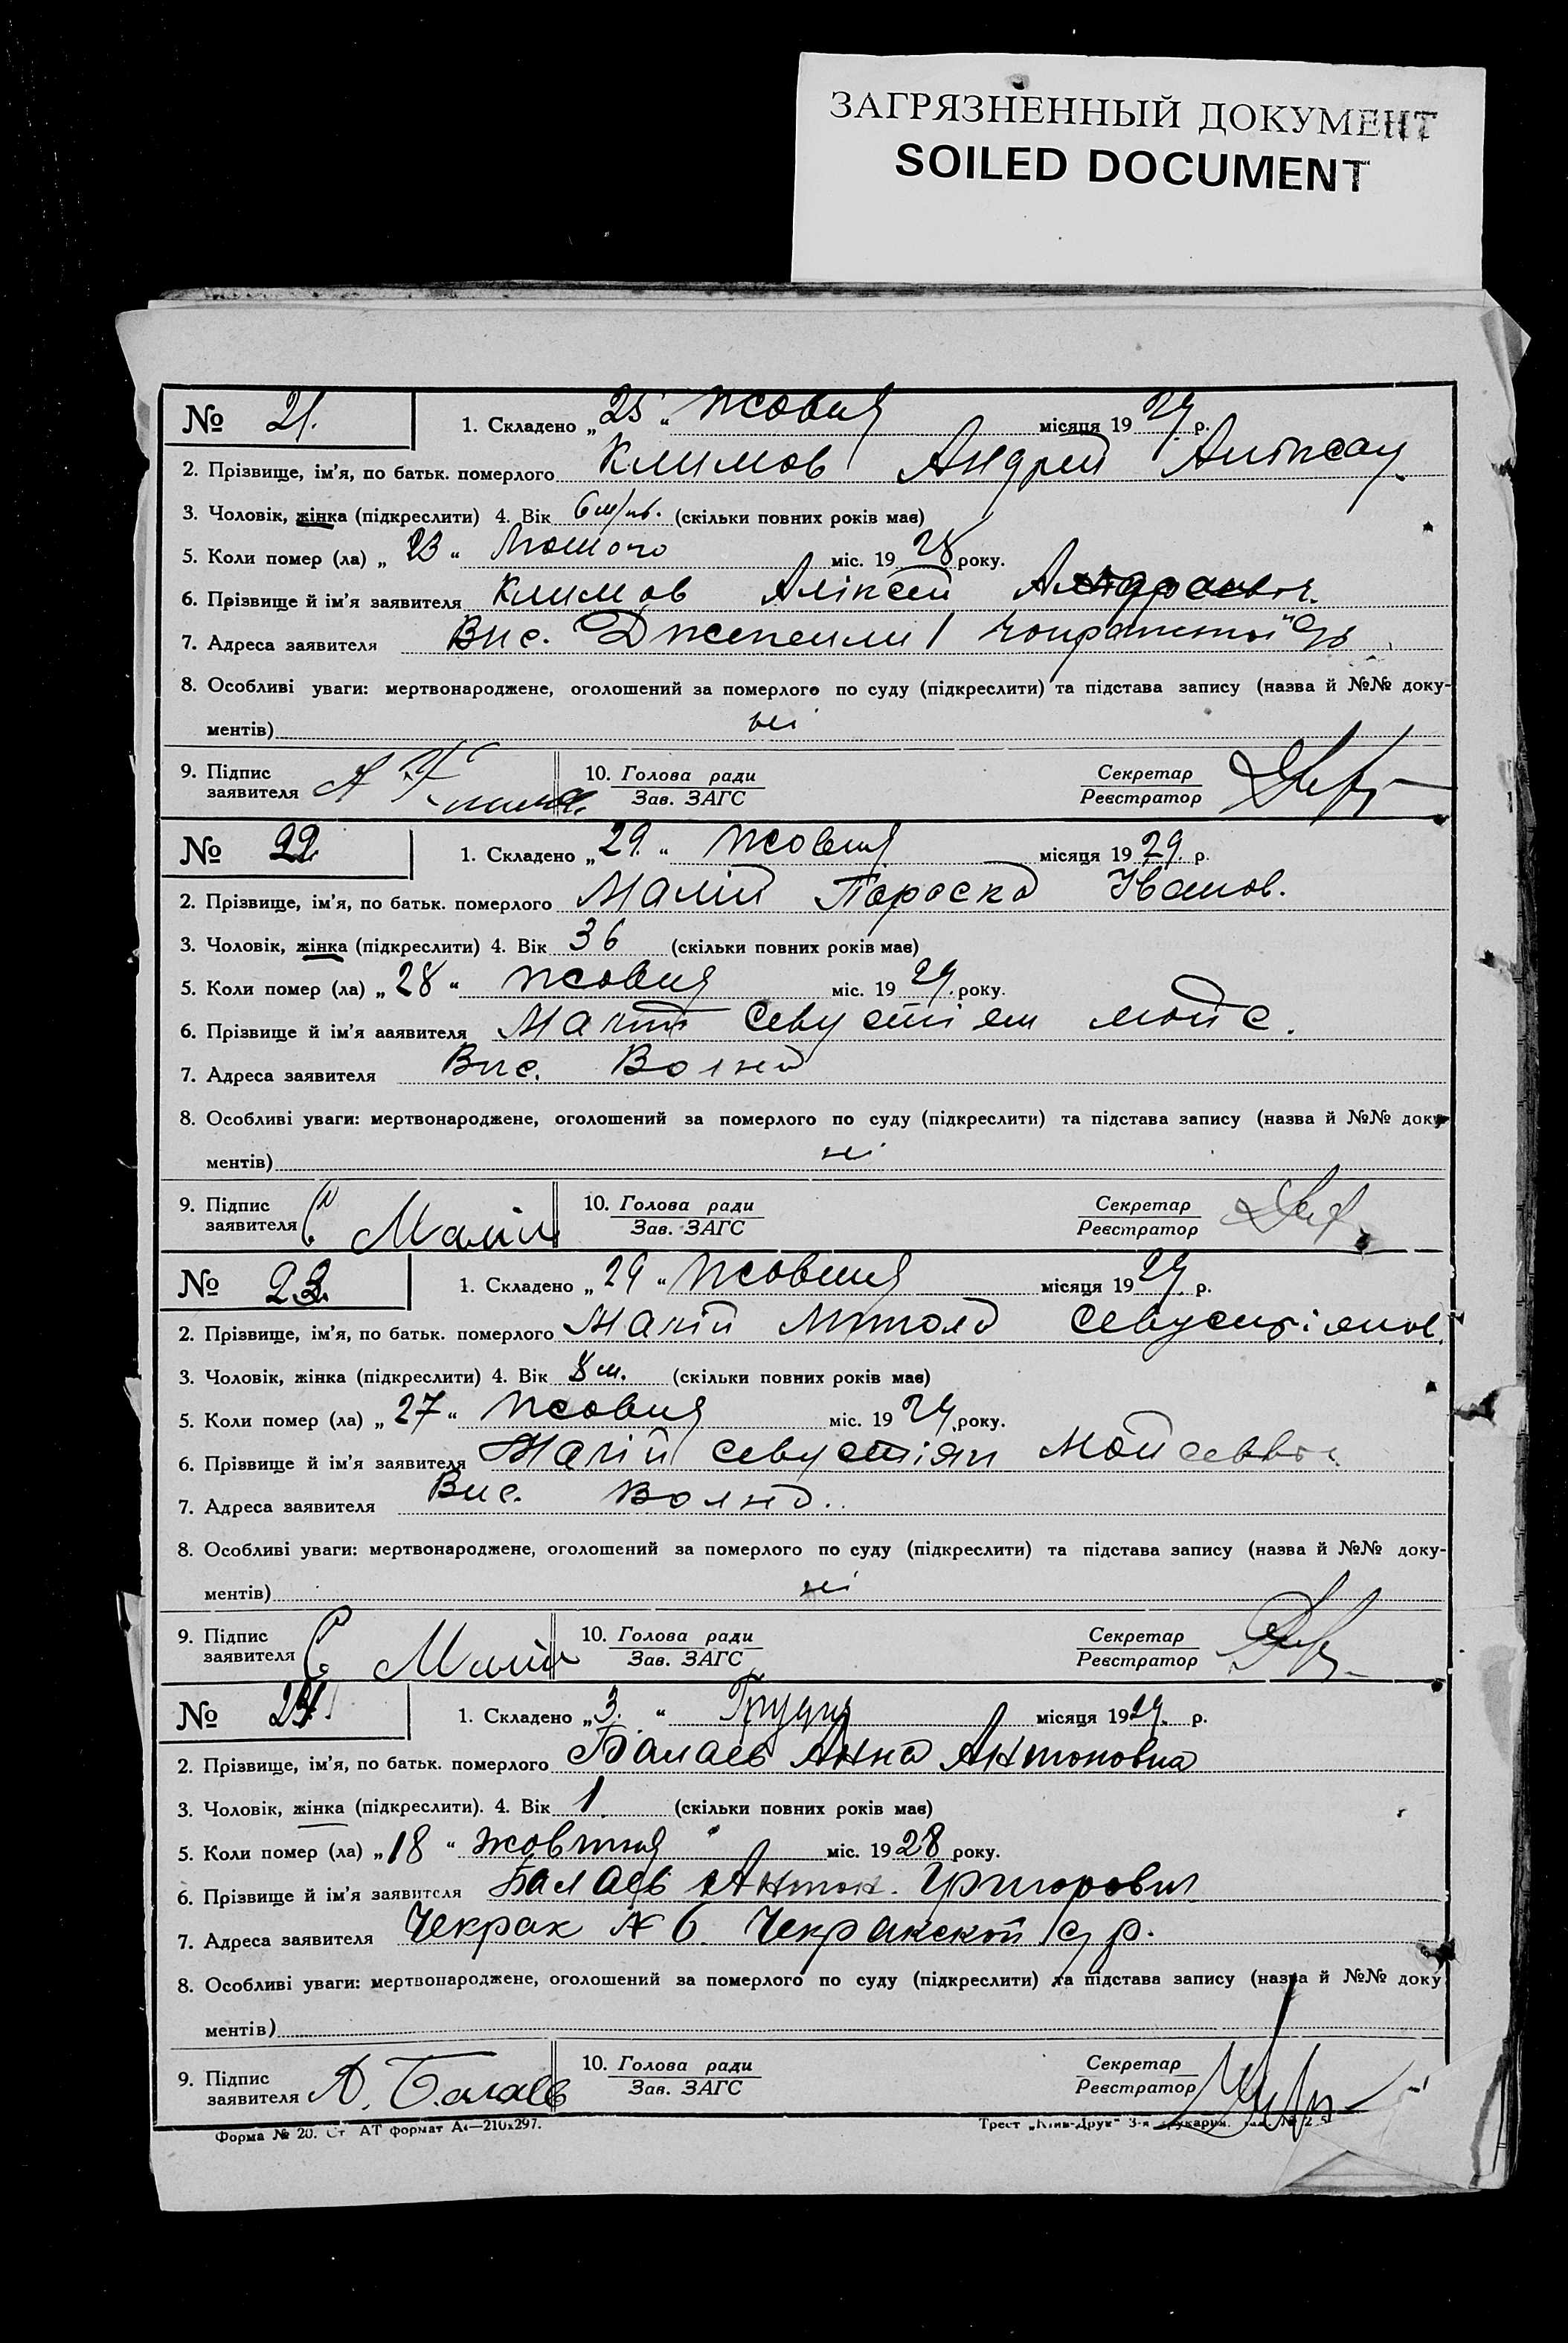 ЗАГРЯЗНЕННЫЙ ДОКУМЕНТ
SOILED DOCUMENT
№ 21. 1. Складено „25“ жовтня місяця 1929 р.
2. Прізвище, ім'я, по батьк. померлого Климов Андрей
3. Чоловік, жінка (підкреслити) 4. Вік (скільки повних років має)
5. Коли помер (ла) „23“ Лютого міс. 1928 року.
6. Прізвище й ім'я заявителя Климов Аліксей
7. Адреса заявителя Вис.
8. Особливі уваги: мертвонароджене, оголошений за померлого по суду (підкреслити) та підстава запису (назва й №№ доку-
ментів) ні
9. Підпис заявителя 10. Голова ради Секретар
Зав. ЗАГС Реєстратор
№ 22. 1. Складено „29.“ жовтня місяця 1929. р.
2. Прізвище, ім'я, по батьк. померлого Малій Параска Іванов.
3. Чоловік, жінка (підкреслити) 4. Вік 36 (скільки повних років має)
5. Коли помер (ла) „28“ жовтня міс. 1929. року.
6. Прізвище й ім'я заявителя Малій Севустіян мойс.
7. Адреса заявителя Вис. Волна
8. Особливі уваги: мертвонароджене, оголошений за померлого по суду (підкреслити) та підстава запису (назва й №№ доку-
ментів) ні
9. Підпис заявителя С Малій 10. Голова ради Секретар
Зав. ЗАГС Реєстратор
№ 23. 1. Складено „29“ жовтня місяця 1929 р.
2. Прізвище, ім'я, по батьк. померлого Малій Севустіянов.
3. Чоловік, жінка (підкреслити) 4. Вік 8 м. (скільки повних років має)
5. Коли помер (ла) „27“ жовтня міс. 1929 року.
6. Прізвище й ім'я заявителя Малій Севустіян Мойсеєвич
7. Адреса заявителя Вис. Волна.
8. Особливі уваги: мертвонароджене, оголошений за померлого по суду (підкреслити) та підстава запису (назва й №№ доку-
ментів) ні
9. Підпис заявителя С Малій 10. Голова ради Секретар
Зав. ЗАГС Реєстратор
№ 24 1. Складено „3.“ Грудня місяця 1929. р.
2. Прізвище, ім'я, по батьк. померлого Балаев Анна Антоновна
3. Чоловік, жінка (підкреслити). 4. Вік 1. (скільки повних років має)
5. Коли помер (ла) „18“ жовтня міс. 1928 року.
6. Прізвище й ім'я заявителя Балаев Антон. Григорович
7. Адреса заявителя Чекрак № 6. Чекракской с/р.
8. Особливі уваги: мертвонароджене, оголошений за померлого по суду (підкреслити) та підстава запису (назва й №№ доку
ментів)
9. Підпис заявителя А. Балаев 10. Голова ради Секретар
Зав. ЗАГС Реєстратор
Форма № 20. Ст АТ формат А4—210х297. Трест „Київ-Друк“ 3-я